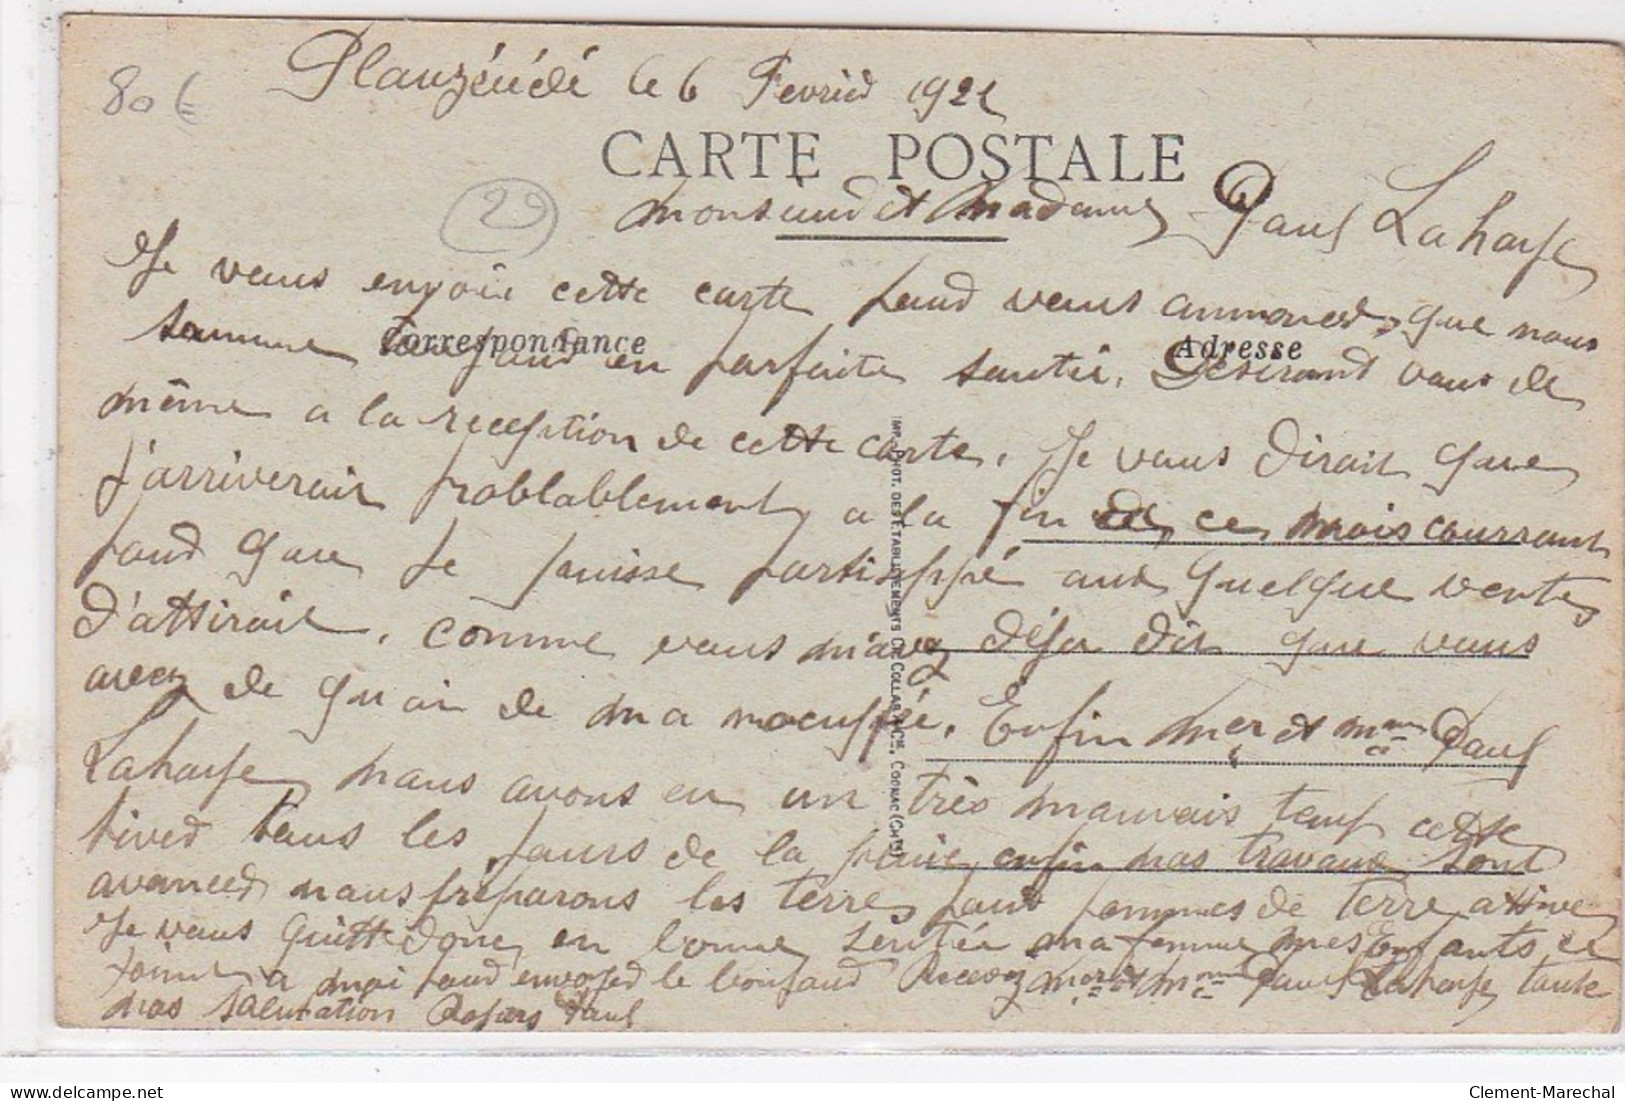 80 €
Plauzévédé le 6 Fevried 1921
CARTE POSTALE
29
Monsieud et Madame Paul Laharpe
Je vous envoie cette carte poud vous annoncer, que nous
Correspondance
Adresse
somme toujoud en parfaite santié. Désirant vous de
même a la reception de cette carte, Je vous dirait que
j'arriverair problablement a la fin de ce mois courrant
poud que je puisse partisippé aux quelque ventes
d'attirait, comme vous m'avez déja dit que vous
avez de quoi de m'a mocuppé. Enfin Mer et mme Paul
Laharpe nous avons eu un très mauvais temp cette
hived tous les jours de la pluie, enfin nos travaux sont
avanced nous préparons les terres pour pommes de terre attive
Je vous quitte donc, en bonne sentée ma femme mes Enfants ce
joint a moi poud envoyed le bonjoud Recevez Mer et mme Paul Laharpe toute
nos salutation Rohars Paul
IMP. PHOT. DES ÉTABLISSEMENTS CH. COLLAS & Cie, COGNAC (Chte)
delcampe.net
Clement-Marechal